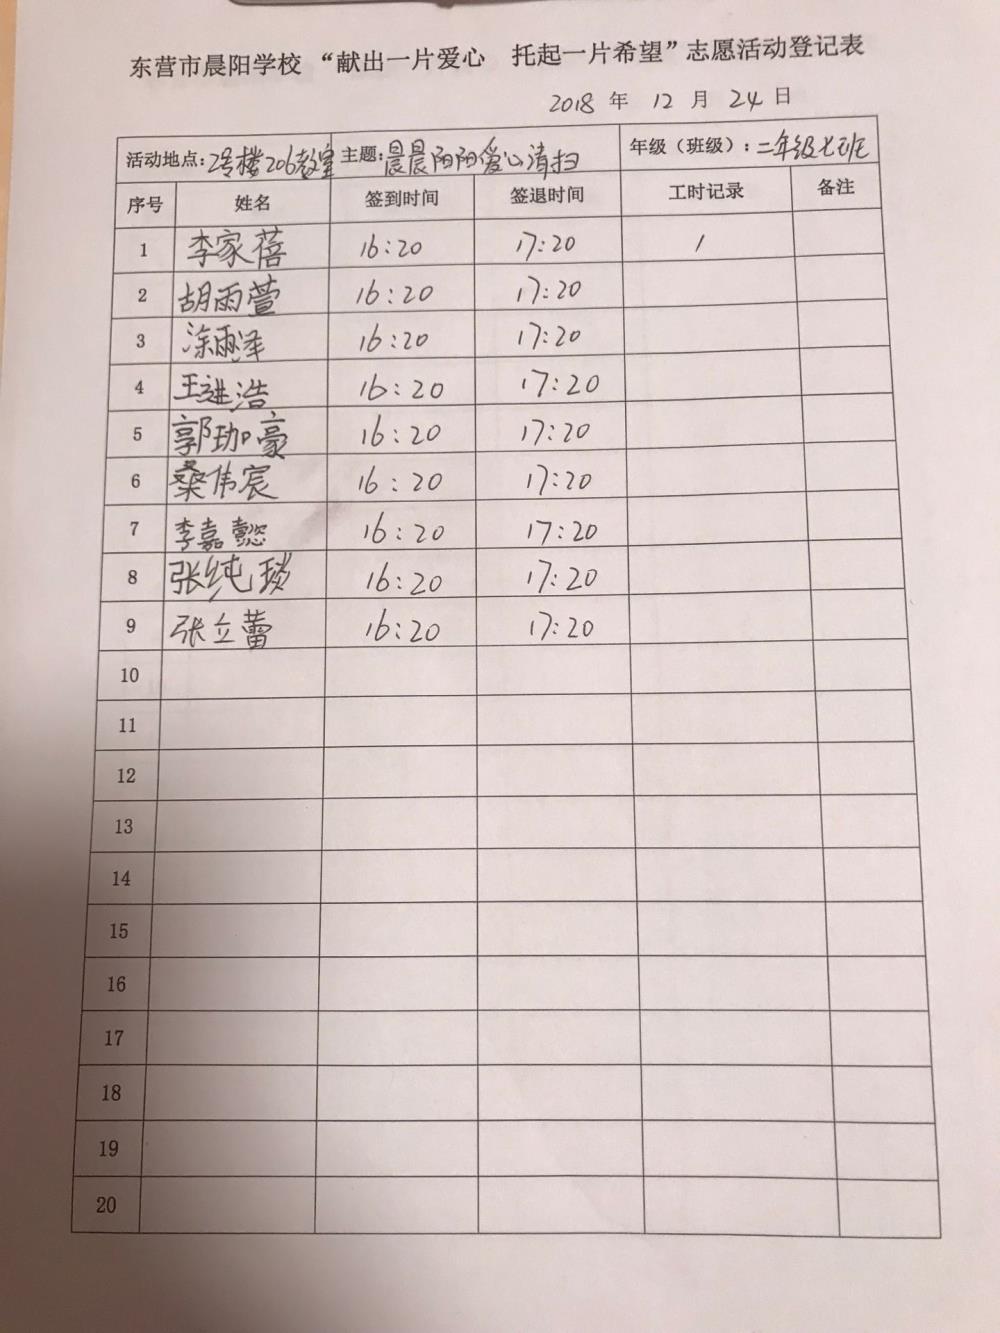 东营市晨阳学校 “献出一片爱心 托起一片希望”志愿活动登记表
2018 年 12 月 24 日
活动地点:2号楼206教室 主题:晨晨阳阳爱心清扫 年级（班级）:二年级七班
序号 姓名 签到时间 签退时间 工时记录 备注
1 李家蓓 16:20 17:20 1
2 胡雨萱 16:20 17:20
3 涂雨泽 16:20 17:20
4 王进浩 16:20 17:20
5 郭珈豪 16:20 17:20
6 桑伟宸 16:20 17:20
7 李嘉懿 16:20 17:20
8 张纯琰 16:20 17:20
9 张立蕾 16:20 17:20
10
11
12
13
14
15
16
17
18
19
20